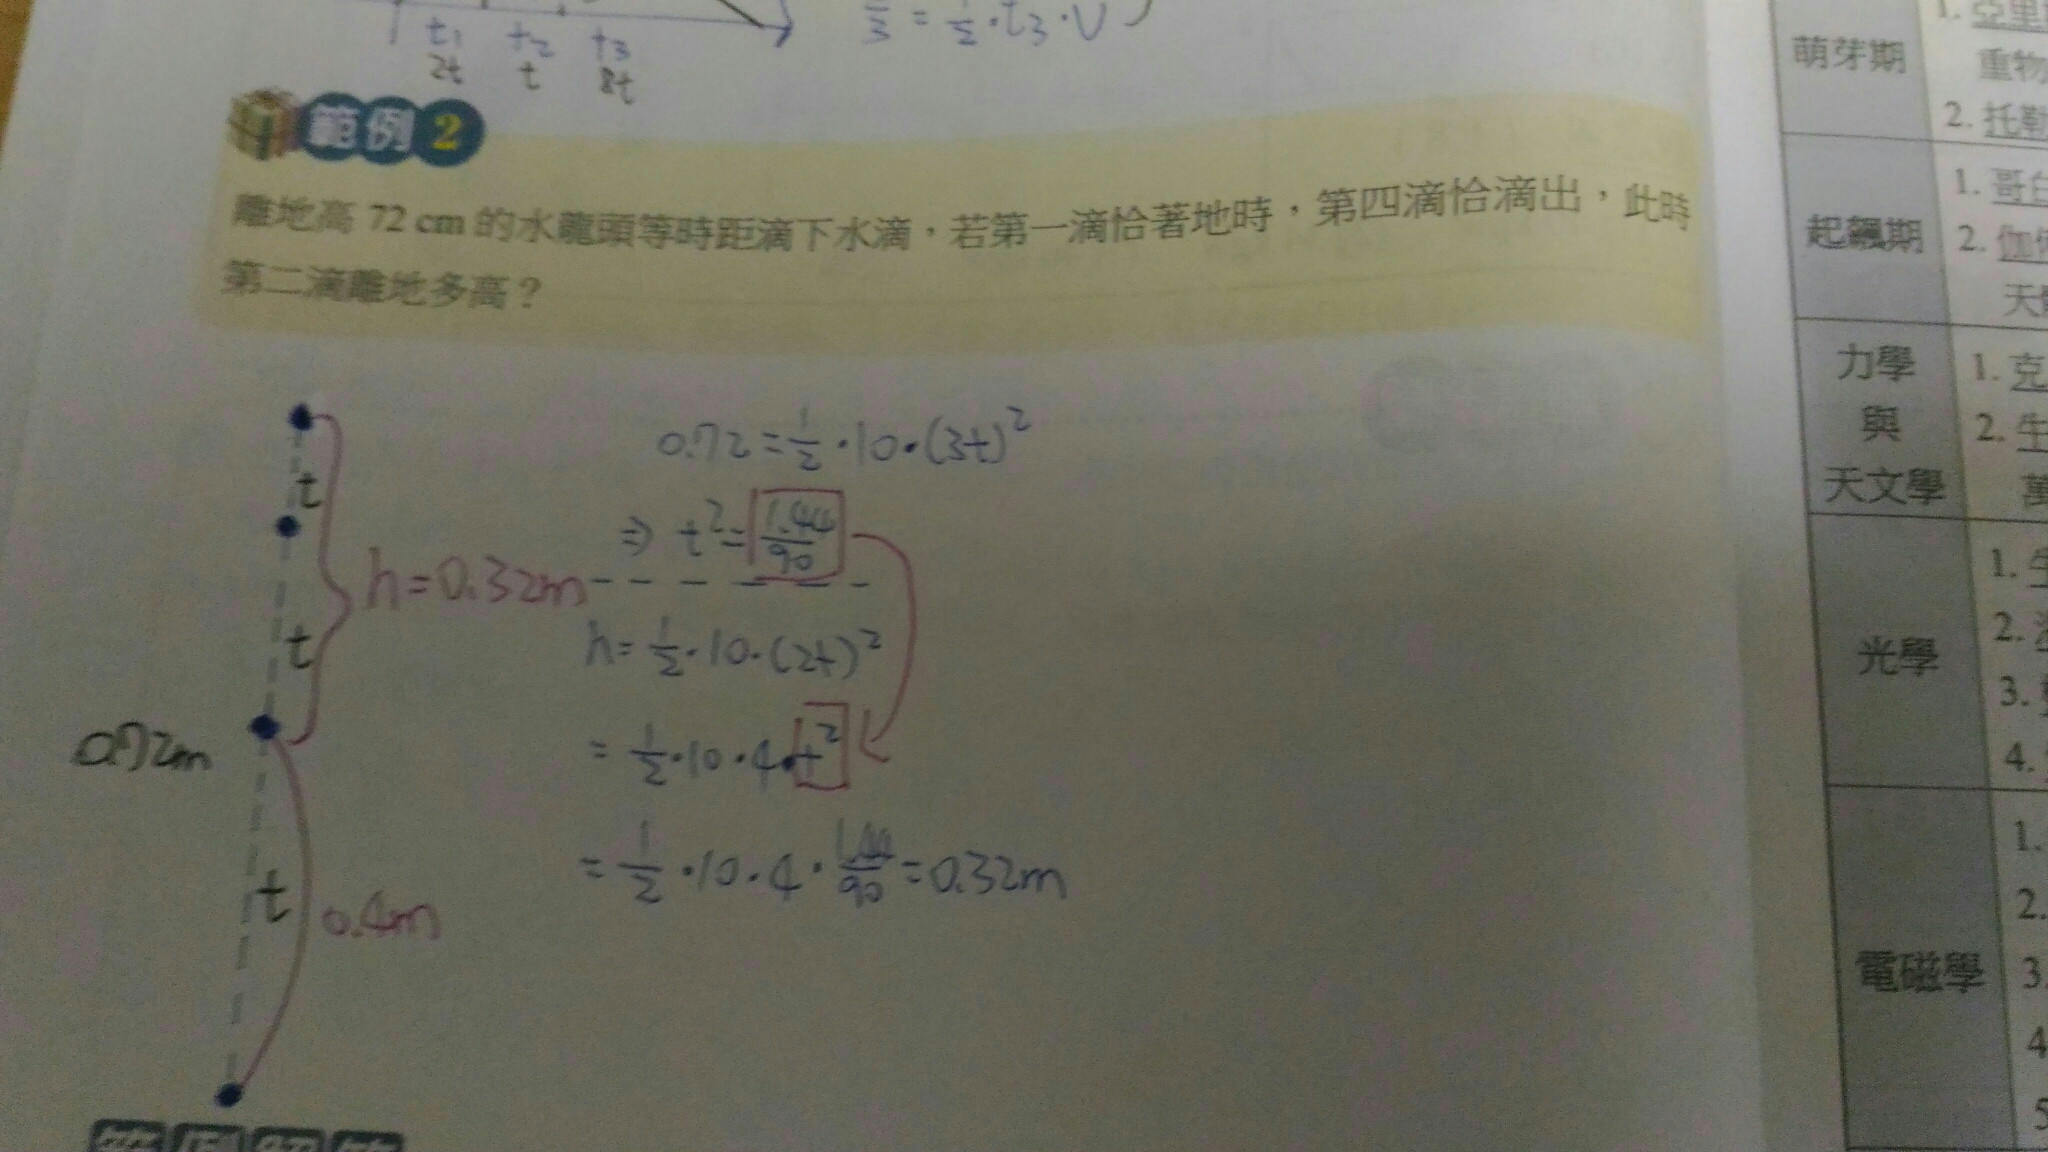 t₁ t₂ t₃
2t t 8t
= 1/2 · t₃ · V
範例 2
離地高 72 cm 的水龍頭等時距滴下水滴，若第一滴恰著地時，第四滴恰滴出，此時
第二滴離地多高？
t
t
h=0.32m
0.72m
t
0.4m
0.72 = 1/2 · 10 · (3t)²
⇒ t² = 1.44/90
h = 1/2 · 10 · (2t)²
= 1/2 · 10 · 4 · t²
= 1/2 · 10 · 4 · 1.44/90 = 0.32m
萌芽期
1. 亞里
重物
2. 托勒
起飆期
1. 哥白
2. 伽
天
力學
與
天文學
1. 克
2. 牛
萬
光學
1.
2.
3.
4.
電磁學
1.
2.
3.
4
5